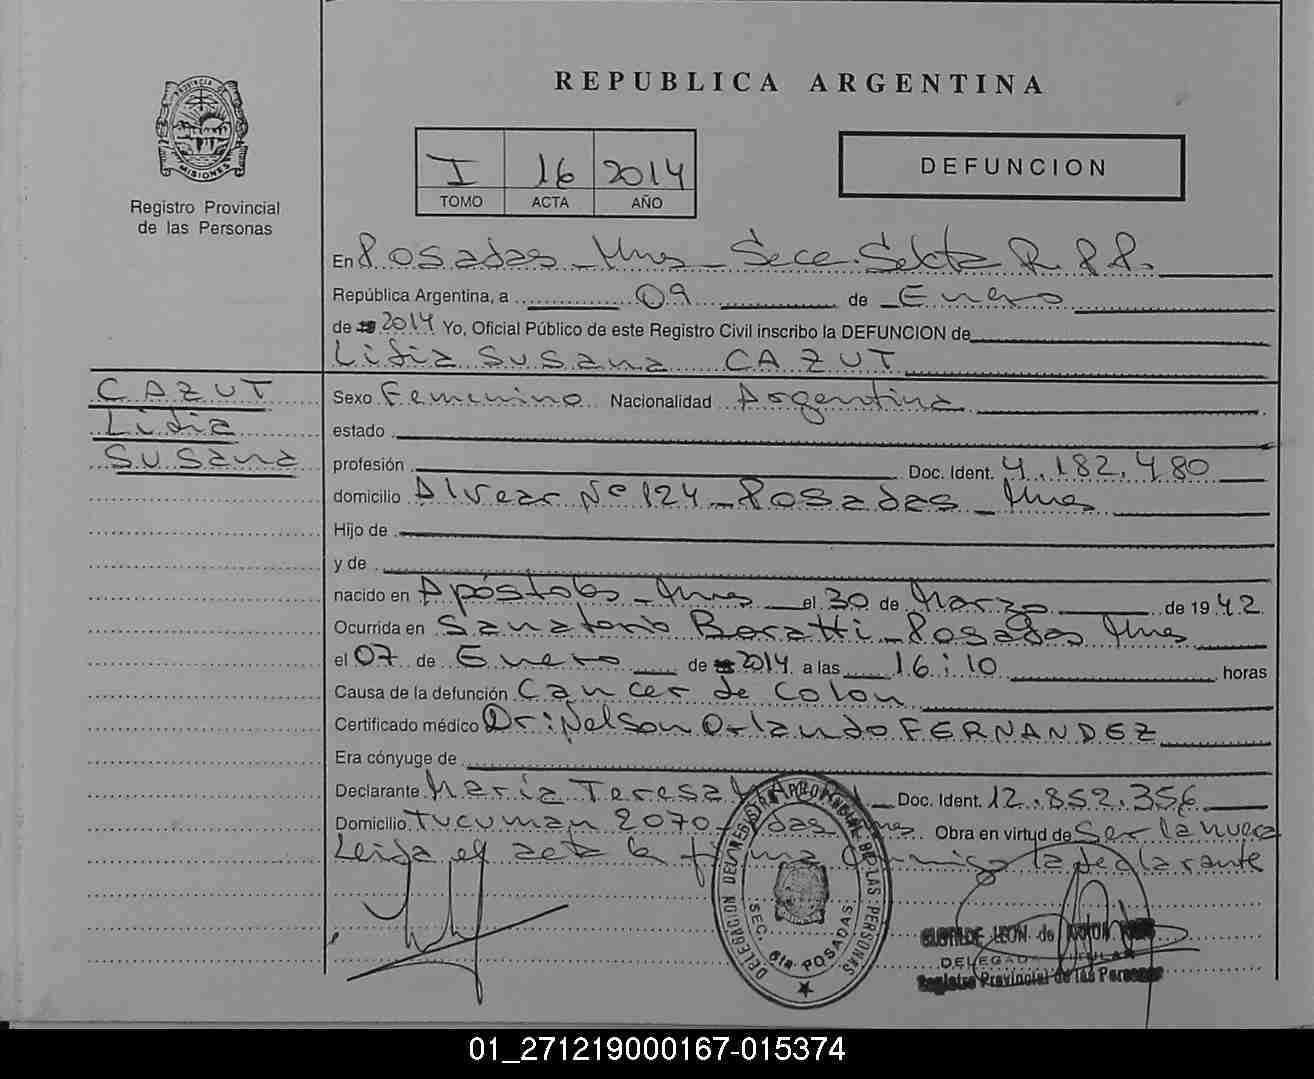 REPUBLICA ARGENTINA
PROVINCIA DE MISIONES
Registro Provincial
de las Personas
I 16 2014
TOMO ACTA AÑO
DEFUNCION
En Posadas - Mnes - Secc Sexta R.P.P.
República Argentina, a 09 de Enero
de 2014 Yo, Oficial Público de este Registro Civil inscribo la DEFUNCION de
Lidia Susana CAZUT
CAZUT
Lidia
Susana
Sexo Femenino Nacionalidad Argentina
estado
profesión Doc. Ident. 4.182.480
domicilio Alvear Nº 124 - Posadas - Mnes
Hijo de
y de
nacido en Apóstoles - Mnes el 30 de Marzo de 1942
Ocurrida en Sanatorio Boratti - Posadas Mnes
el 07 de Enero de 2014 a las 16:10 horas
Causa de la defunción Cancer de Colon
Certificado médico Dr: Nelson Orlando FERNANDEZ
Era cónyuge de
Declarante María Teresa Doc. Ident. 12.852.356
Domicilio Tucuman 2070 Obra en virtud de Ser la nuera
Leida el acta la firma conmigo la declarante
DELEGACION DEL REGISTRO PROVINCIAL DE LAS PERSONAS
SEC. 6ta. POSADAS
LEON de
DELEGADA TITULAR
Registro Provincial de las Personas
01_271219000167-015374